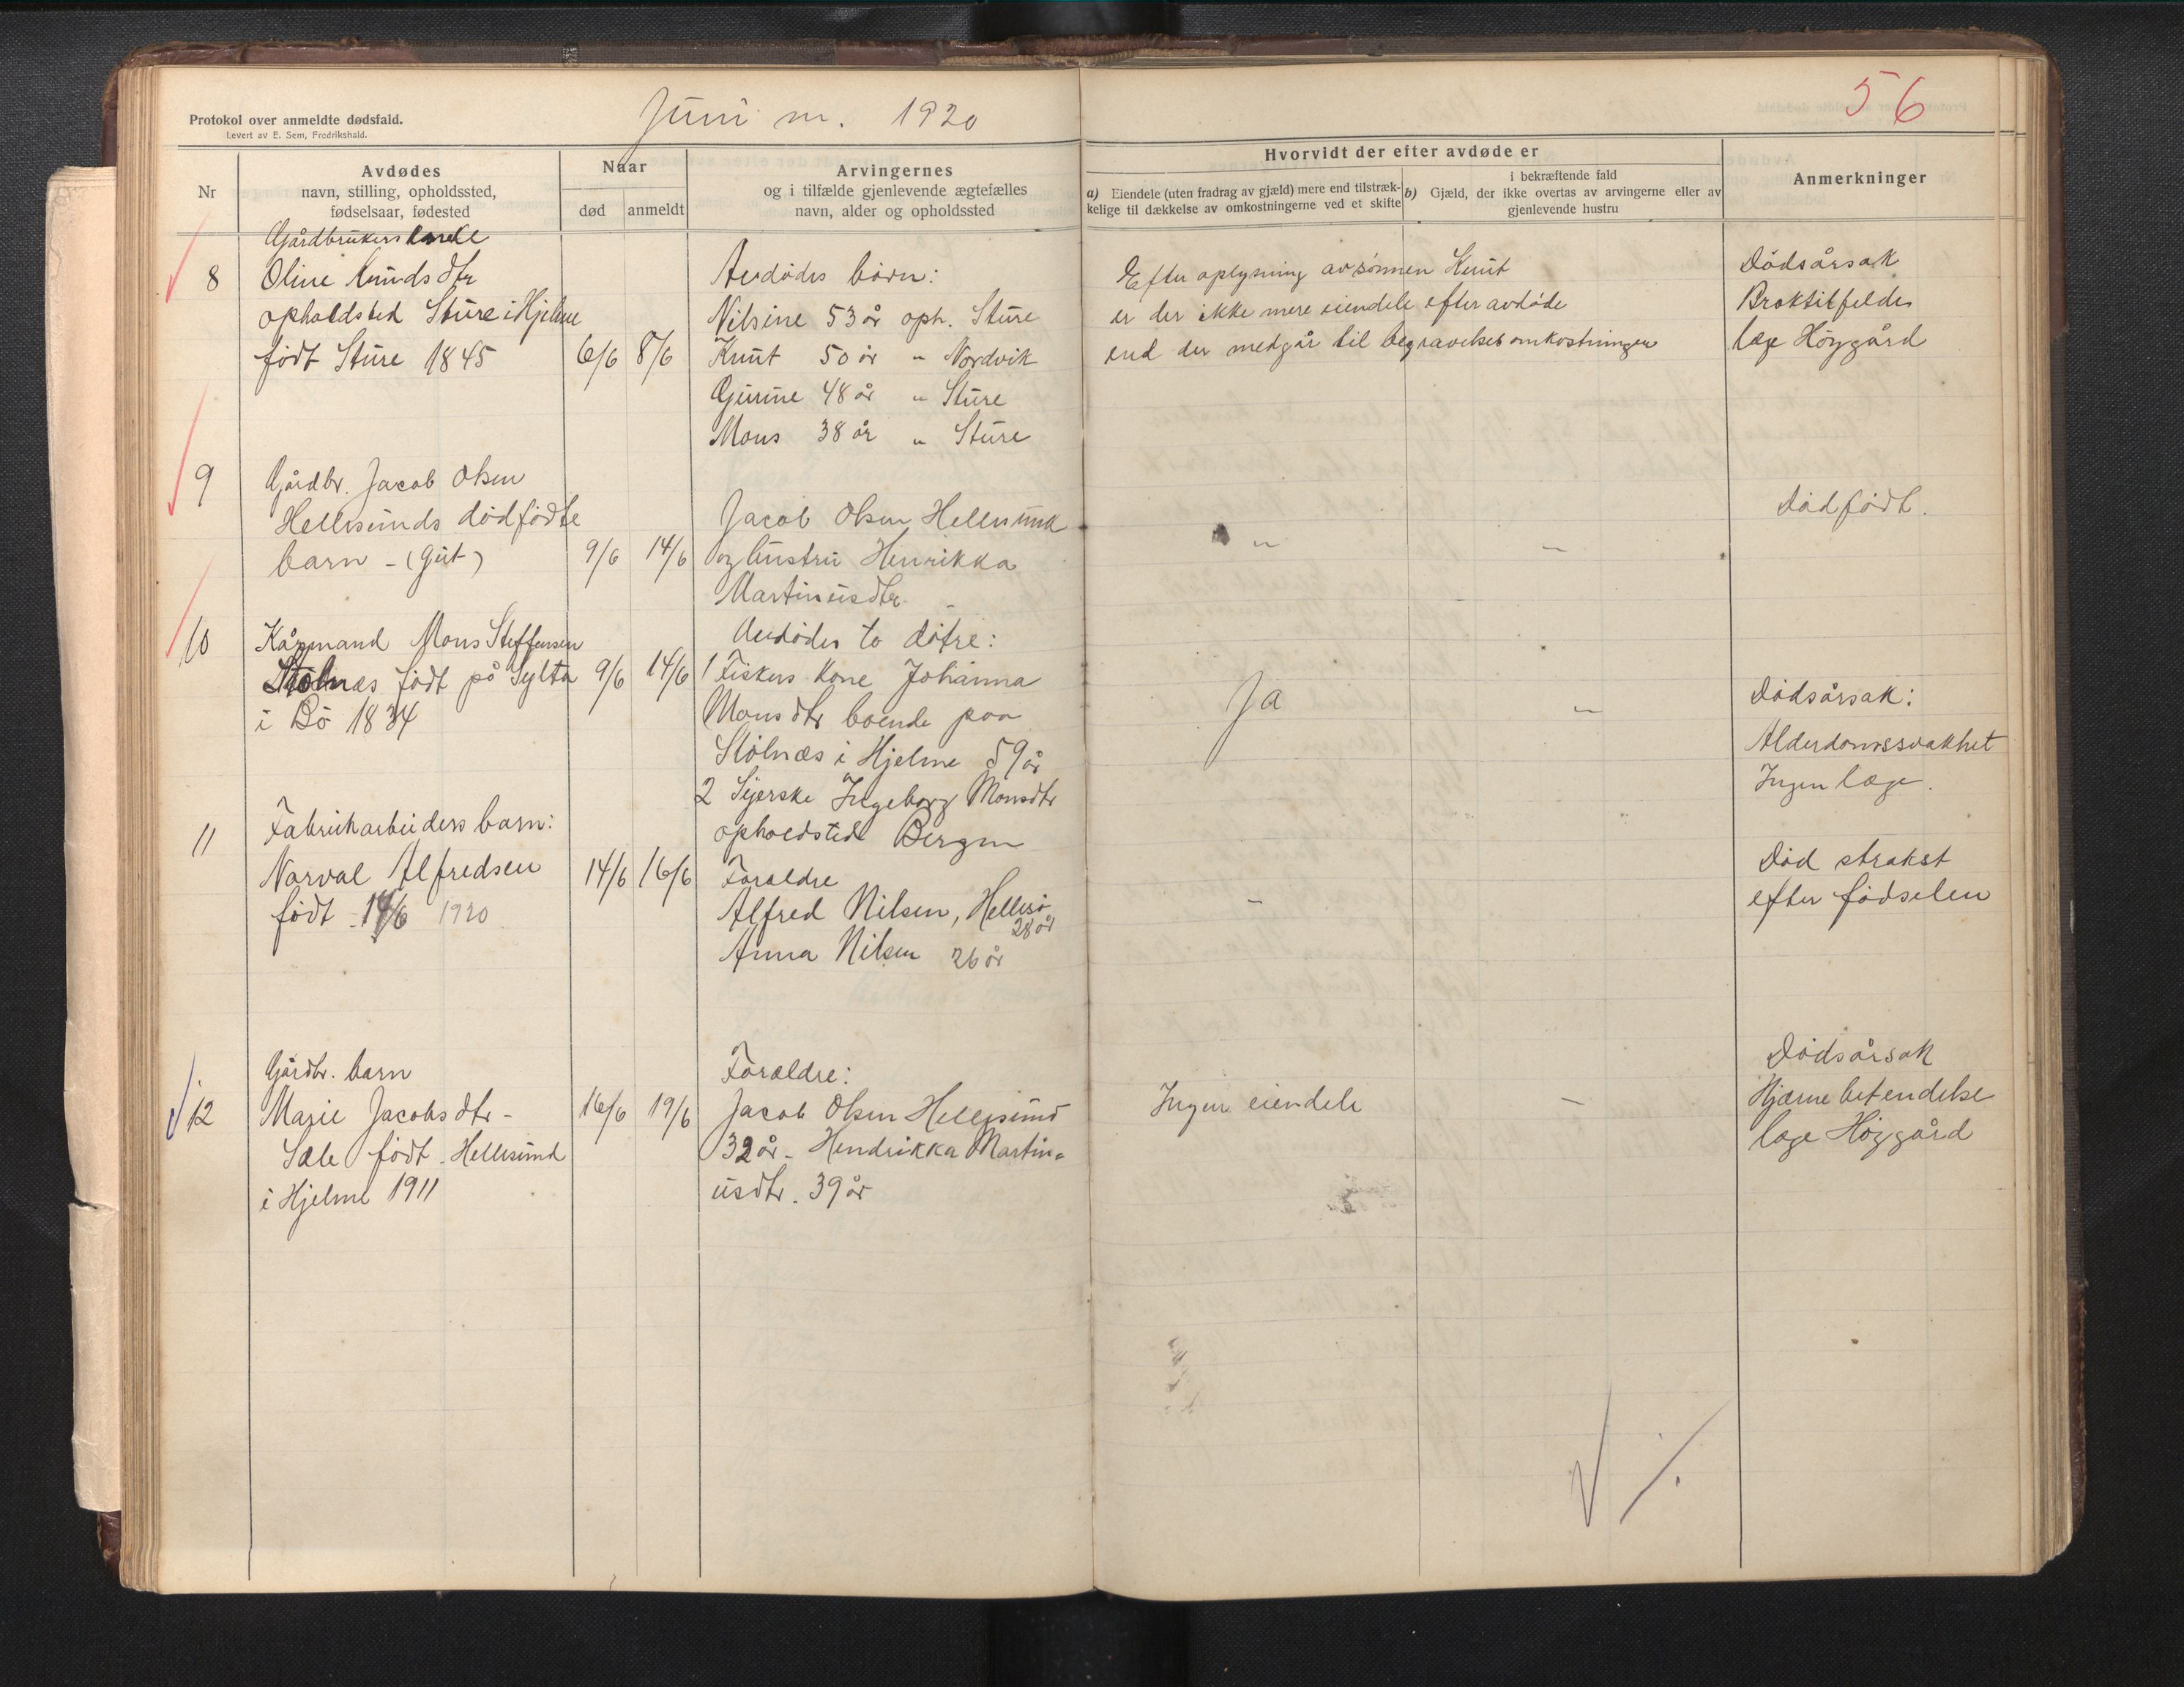 Juni m. 1920
56
Protokol over anmeldte dødsfald.
Levert av E. Sem, Fredrikshald.
Nr
Avdødes
navn, stilling, opholdssted,
fødselsaar, fødested
Naar
død
anmeldt
Arvingernes
og i tilfælde gjenlevende ægtefælles
navn, alder og opholdssted
Hvorvidt der efter avdøde er
a) Eiendele (uten fradrag av gjæld) mere end tilstræk-
kelige til dækkelse av omkostningerne ved et skifte
i bekræftende fald
b) Gjæld, der ikke overtas av arvingerne eller av
gjenlevende hustru
Anmerkninger
8
Gårdbrukers
Oline
opholdsted Sture i Hjelme
født Sture 1845
6/6
8/6
Avdødes børn:
Nilsine 53 år oph. Sture
Knut 50 år " Nordvik
Gurine 48 år " Sture
Mons 38 år " Sture
Efter oplysning av sønnen Knut
er der ikke mere eiendele efter avdøde
end der medgår til begravelsesomkostninger
Dødsårsak
læge Höygård
9
Gårdbr. Jacob Olsen
Hellisunds dødfødte
barn - (Gut)
9/6
14/6
Jacob Olsen
og hustru Henrikka
Martinusdtr.
"
–
Dødfødt.
10
Kårmand Mons Steffensen
Stølnæs født på Sylta
i Bö 1834
9/6
14/6
Avdødes to døtre:
1 Fiskers kone Johanna
Monsdtr boende paa
Stölnæs i Hjelme 59 år
2 Syerske Ingeborg Monsdtr
opholdsted Bergen
Ja
"
Dødsårsak:
Alderdomssvakhet
Ingen læge.
11
Fabrikarbeiders barn:
Norval Alfredsen
født 14/6 1920
14/6
16/6
Forældre
Alfred Nilsen, Hellisö
28 år
Anna Nilsen 26 år
–
Død strakst
efter fødselen
12
Gårdbr. barn
Marie Jacobsdtr -
født Hellisund
i Hjelme 1911
16/6
19/6
Forældre:
Jacob Olsen Hellisund
32 år - Hendrikka Martin=
usdtr. 39 år
Ingen eiendele
–
Dødsårsak
Hjærnebetendelse
læge Höygård